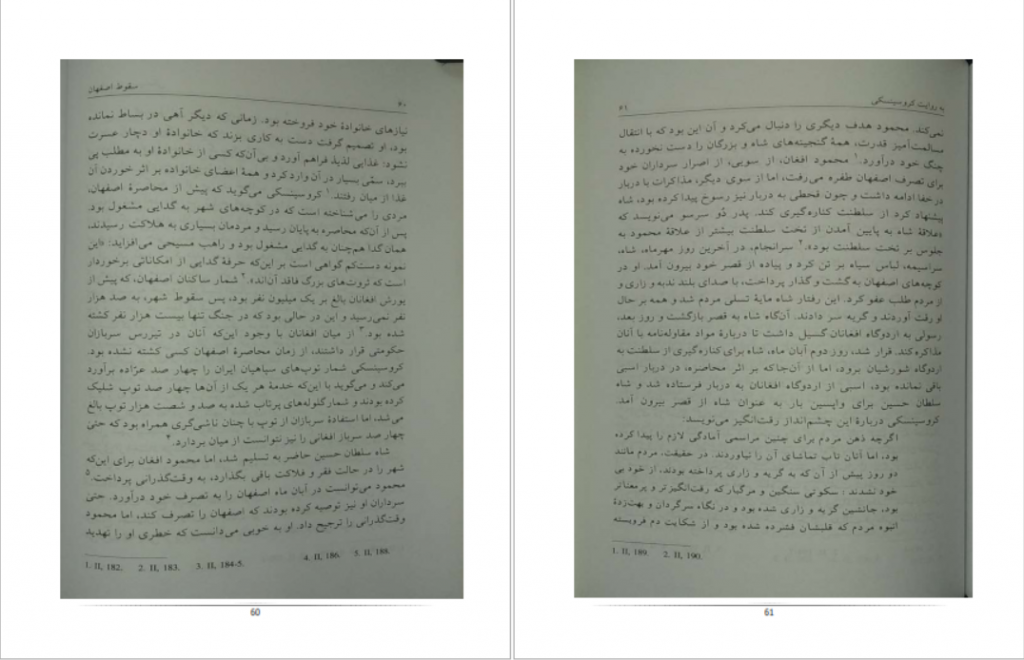 سقوط اصفهان
۶۰
نیازهای خانوادهٔ خود فروخته بود. زمانی که دیگر آهی در بساط نمانده
بود، او تصمیم گرفت دست به کاری بزند که خانوادهٔ او دچار عسرت
نشود: غذایی لذیذ فراهم آورد و بی‌آن‌که کسی از خانوادهٔ او به مطلب پی
ببرد، سمّی بسیار در آن وارد کرد و همهٔ اعضای خانواده بر اثر خوردن آن
غذا از میان رفتند.۱ کروسینسکی می‌گوید که پیش از محاصرهٔ اصفهان،
مردی را می‌شناخته است که در کوچه‌های شهر به گدایی مشغول بود.
پس از آن‌که محاصره به پایان رسید و مردمان بسیاری به هلاکت رسیدند،
همان گدا هم‌چنان به گدایی مشغول بود و راهب مسیحی می‌افزاید: «این
نمونه دست‌کم گواهی است بر این‌که حرفهٔ گدایی از امکاناتی برخوردار
است که ثروت‌های بزرگ فاقد آن‌اند».۲ شمار ساکنان اصفهان، که پیش از
یورش افغانان بالغ بر یک میلیون نفر بود، پس سقوط شهر، به صد هزار
نفر نمی‌رسید و این در حالی بود که در جنگ تنها بیست هزار نفر کشته
شده بود.۳ از میان افغانان با وجود این‌که آنان در تیررس سربازان
حکومتی قرار داشتند، از زمان محاصرهٔ اصفهان کسی کشته نشده بود.
کروسینسکی شمار توپ‌های سپاهیان ایران را چهار صد عرّاده برآورد
می‌کند و می‌گوید با این‌که خدمهٔ هر یک از آن‌ها چهار صد توپ شلیک
کرده بودند و شمار گلوله‌های پرتاب شده به صد و شصت هزار توپ بالغ
می‌شد، اما استفادهٔ سربازان از توپ با چنان ناشی‌گری همراه بود که حتیٰ
چهار صد سرباز افغانی را نیز نتوانست از میان بردارد.۴
شاه سلطان حسین حاضر به تسلیم شد، اما محمود افغان برای این‌که
شهر را در حالت فقر و فلاکت باقی بگذارد، به وقت‌گذرانی پرداخت.۵
محمود می‌توانست در آبان ماه اصفهان را به تصرف خود درآورد. حتیٰ
سرداران او نیز توصیه کرده بودند که اصفهان را تصرف کند، اما محمود
وقت‌گذرانی را ترجیح داد. او به خوبی می‌دانست که خطری او را تهدید
1. II, 182. 2. II, 183. 3. II, 184-5. 4. II, 186. 5. II, 188.
60
به روایت کروسینسکی
۶۱
نمی‌کند. محمود هدف دیگری را دنبال می‌کرد و آن این بود که با انتقال
مسالمت‌آمیز قدرت، همهٔ گنجینه‌های شاه و بزرگان را دست نخورده به
چنگ خود درآورد.۱ محمود افغان، از سویی، از اصرار سرداران خود
برای تصرف اصفهان طفره می‌رفت، اما از سوی دیگر، مذاکرات با دربار
در خفا ادامه داشت و چون قحطی به دربار نیز رسوخ پیدا کرده بود، شاه
پیشنهاد کرد از سلطنت کناره‌گیری کند. پدر دُو سرسو می‌نویسد که
«علاقهٔ شاه به پایین آمدن از تخت سلطنت بیشتر از علاقهٔ محمود به
جلوس بر تخت سلطنت بود».۲ سرانجام، در آخرین روز مهرماه، شاه،
سراسیمه، لباس سیاه بر تن کرد و پیاده از قصر خود بیرون آمد. او در
کوچه‌های اصفهان به گشت و گذار پرداخت، با صدای بلند ندبه و زاری و
از مردم طلب عفو کرد. این رفتار شاه مایهٔ تسلی مردم شد و همه بر حال
او رقت آوردند و گریه سر دادند. آن‌گاه شاه به قصر بازگشت و روز بعد،
رسولی به اردوگاه افغانان گسیل داشت تا دربارهٔ مواد مقاوله‌نامه با آنان
مذاکره کند. قرار شد، روز دوم آبان ماه، شاه برای کناره‌گیری از سلطنت به
اردوگاه شورشیان برود، اما از آن‌جا که بر اثر محاصره، در دربار اسبی
باقی نمانده بود، اسبی از اردوگاه افغانان به دربار فرستاده شد و شاه
سلطان حسین برای واپسین بار به عنوان شاه از قصر بیرون آمد.
کروسینسکی دربارهٔ این چشم‌انداز رقت‌انگیز می‌نویسد:
اگرچه ذهن مردم برای چنین مراسمی آمادگی لازم را پیدا کرده
بود، اما آنان تاب تماشای آن را نیاوردند. در حقیقت، مردم مانند
دو روز پیش از آن که به گریه و زاری پرداخته بودند، از خود بی
خود نشدند: سکوتی سنگین و مرگبار که رقت‌انگیزتر و پرمعناتر
بود، جانشین گریه و زاری شده بود و در نگاه سرگردان و بهت‌زدهٔ
انبوه مردم که قلبشان فشرده شده بود و از شکایت دم فروبسته
1. II, 189. 2. II, 190.
61